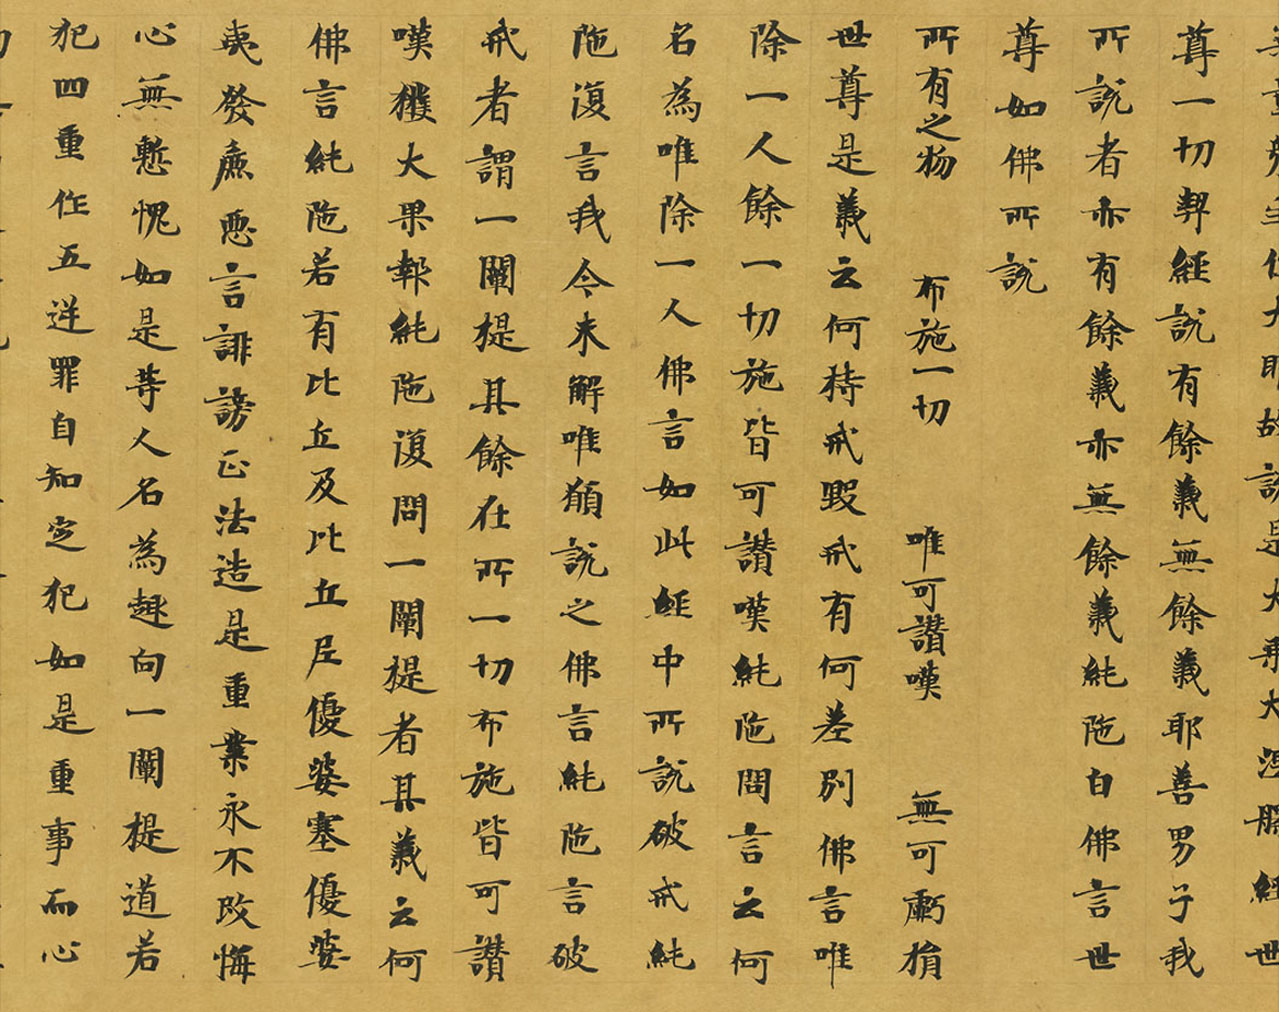 尊一切契經説有餘義無餘義耶善男子我
所説者亦有餘義亦無餘義純陁白佛言世
尊如佛所説
所有之物 布施一切 唯可讃嘆 無可虧損
世尊是義云何持戒毀戒有何差別佛言唯
除一人餘一切施皆可讃嘆純陁問言云何
名為唯除一人佛言如此經中所説破戒純
陁復言我今未解唯願説之佛言純陁言破
戒者謂一闡提其餘在所一切布施皆可讃
嘆獲大果報純陁復問一闡提者其義云何
佛言純陁若有比丘及比丘尼優婆塞優婆
夷發麁惡言誹謗正法造是重業永不改悔
心無慙愧如是等人名為趣向一闡提道若
犯四重作五逆罪自知定犯如是重事而心